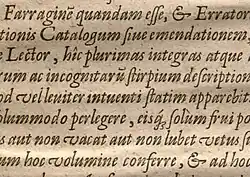 Farraginē quandam esse, & Errato
tionis Catalogum siue emendationem,
e Lector, hîc plurimas integras atque
rum ac incognitarū stirpium description
od vel leuiter intuenti statim apparebit
olummodo perlegere, eisq́ solum frui po
s aut non vacat aut non lubet vetus st
um hoc volumine conferre, & ad hoc